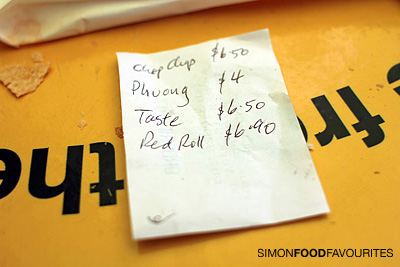 Chop Chop $6.50
Phuong $4
Taste $6.50
Red Roll $6.90
fre
the
SIMONFOODFAVOURITES